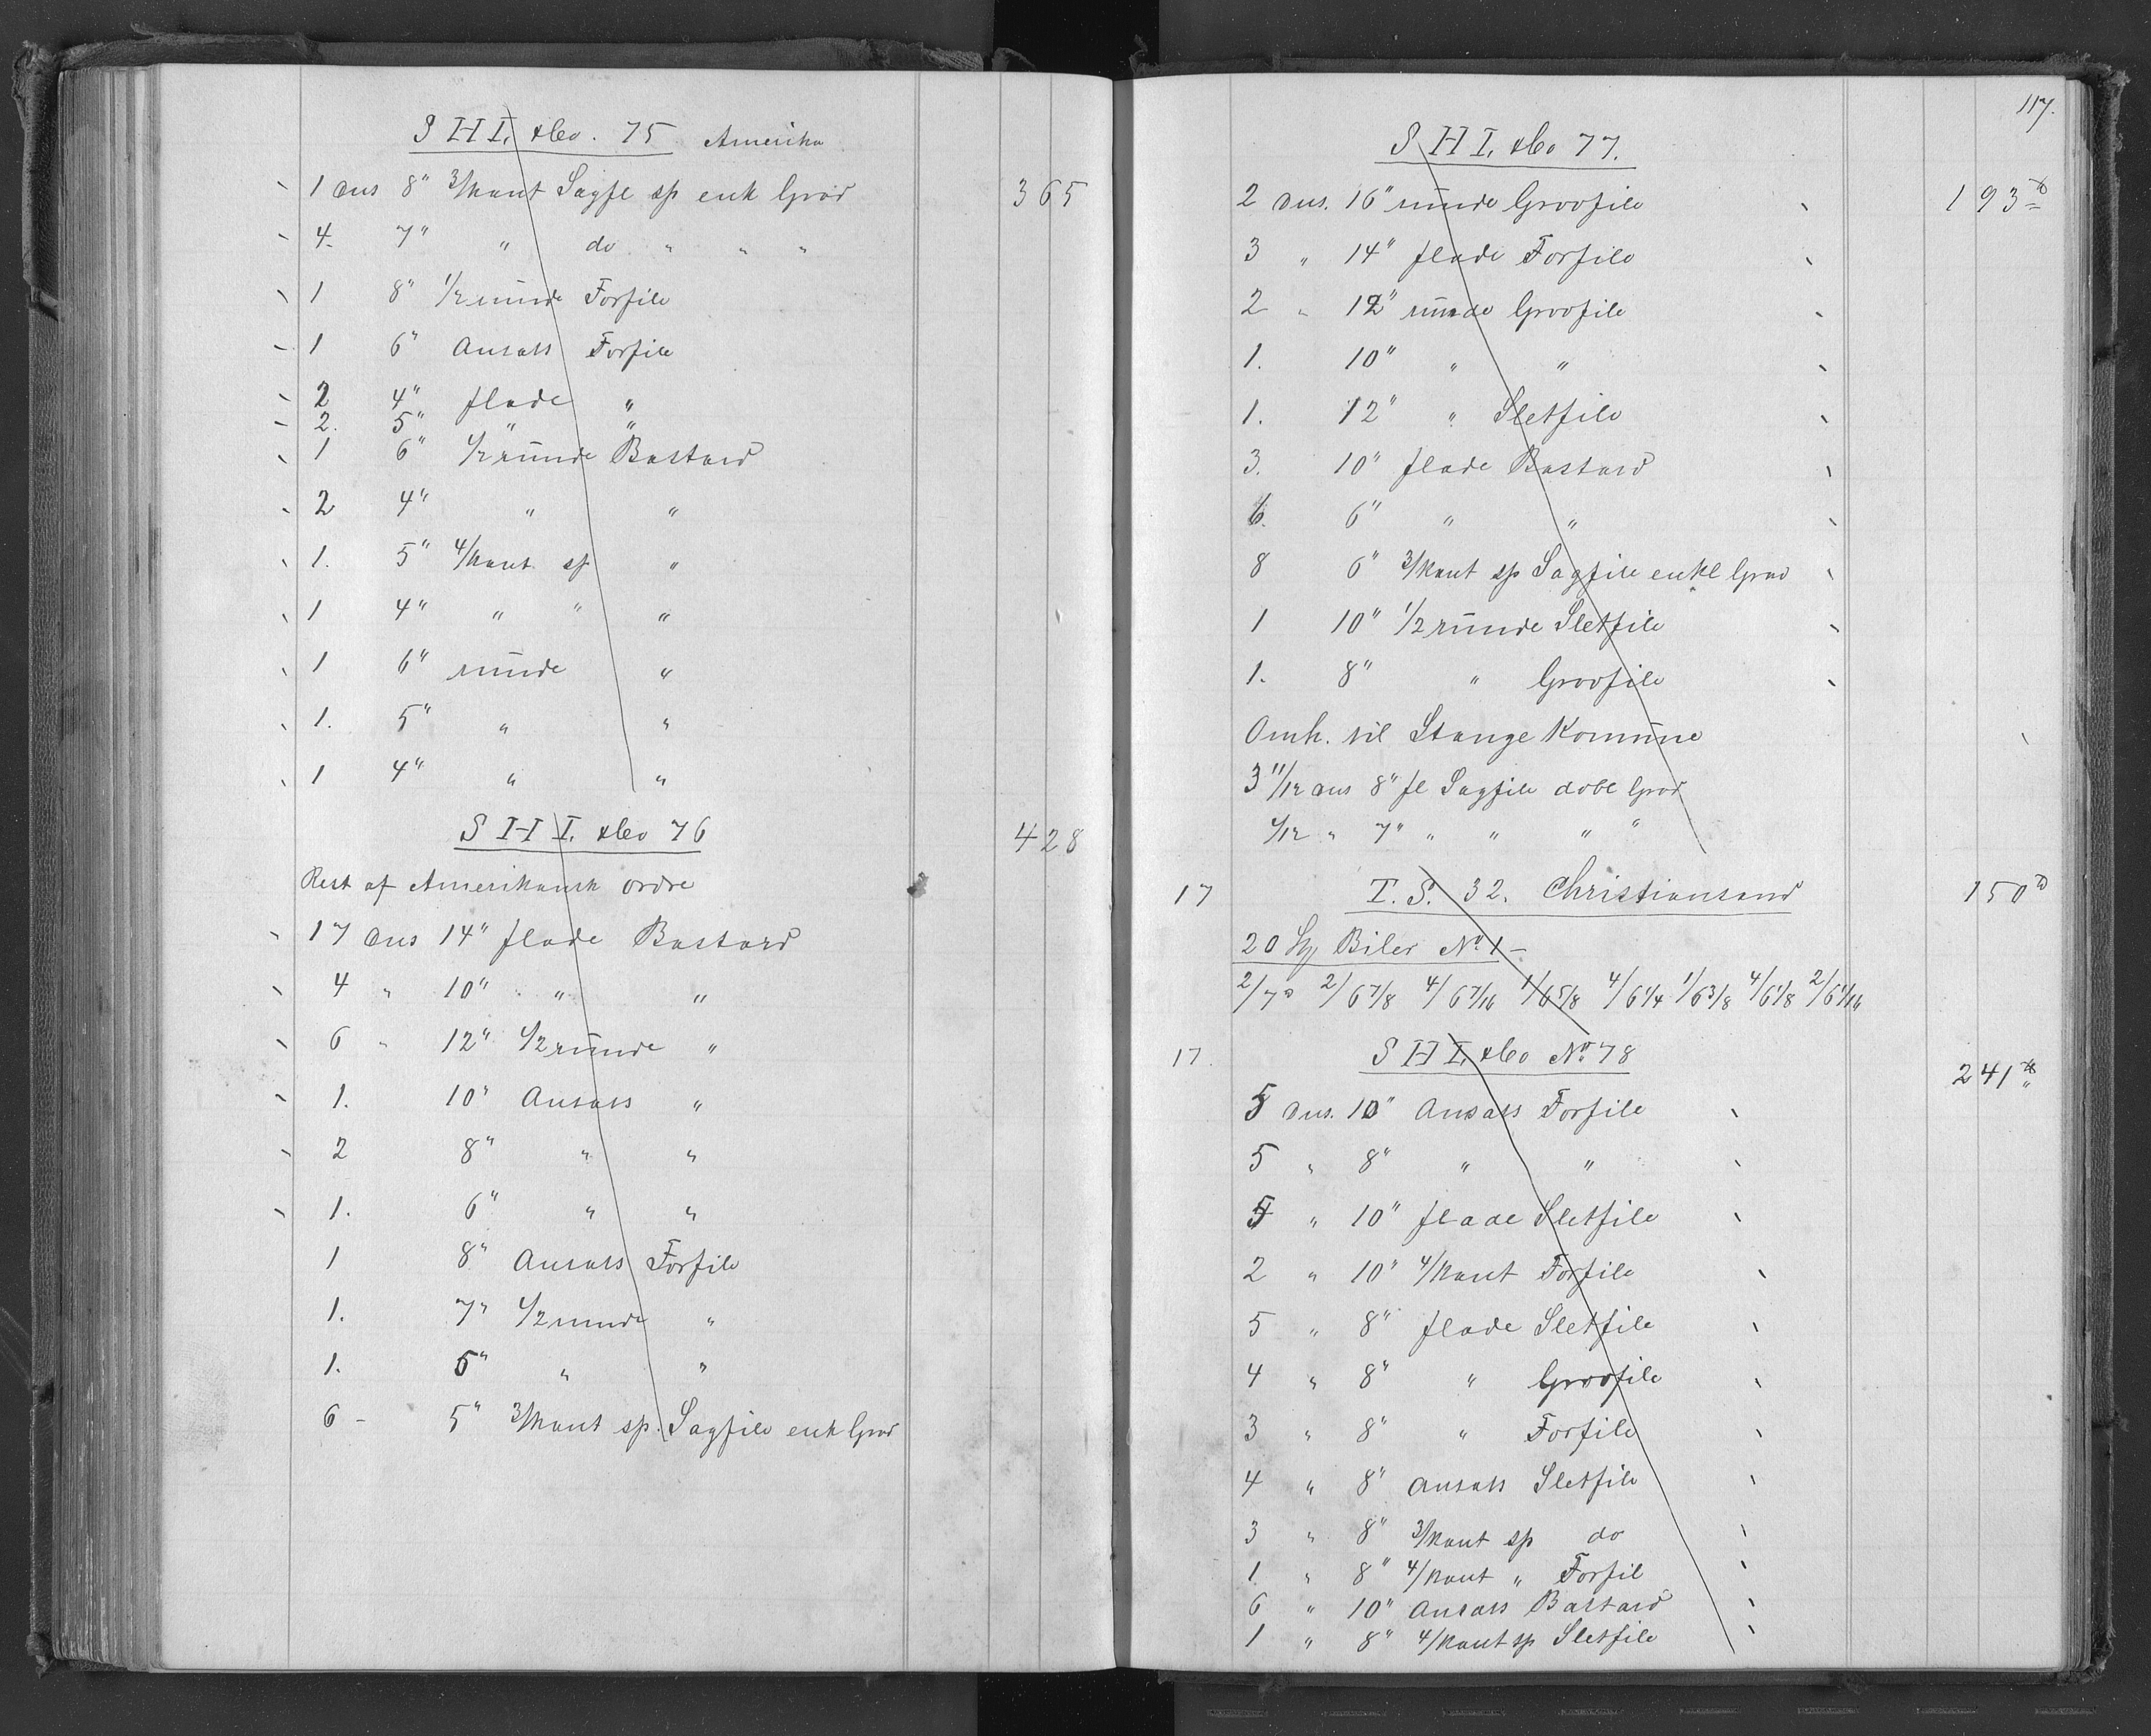 S H I. & Co. 75 Amerika
1 dus 8" 3/kant Sagfl sp enk Grad 365
4. 7" " do " " "
1 8" 1/2 runde Forfile
1 6" Ansats Forfile
2 4" flade "
2. 5" " "
1 6" 1/2 runde Bastard
2 4" " "
1. 5" 4/kant sp "
1 4" " " "
1 6" runde "
1. 5" " "
1 4" " "
S H I. & Co 76 428
Rest af Amerikansk ordre
17 dus 14" flade Bastard
4 " 10" " "
6 " 12" 1/2 runde "
1. 10" Ansats "
2 8" " "
1. 6" " "
1 8" Ansats Forfile
1. 7" 1/2 runde "
1. 5" " "
6 - 5" 3/kant sp. Sagfile enk Grad
117.
S H I. & Co 77.
2 dus. 16" runde Grovfile 193
3 " 14" flade Forfile
2 " 12" runde Grovfile
1. 10" " "
1. 12" " Sletfile
3. 10" flade Bastard
6. 6" " "
8 6" 3/kant sp Sagfile enkl Grad
1 10" 1/2 runde Sletfile
1. 8" " Grovfile
Omh. til Stange Komune
3 11/12 dus 8" fl Sagfile dobl Grad
1/12 " 7" " " " "
17 I. S. 32. Christiansand 150
20 Biler No 1 -
2/7" 2/6 7/8 4/6 7/16 1/6 5/8 4/6 1/4 1/6 3/8 4/6 1/8 2/6 1/16
17. S H I. & Co No 78
241
5 dus. 10" Ansats Forfile
5 " 8" " "
5 " 10" flade Sletfile
2 " 10" 4/kant Forfile
5 " 8" flade Sletfile
4 " 8" " Grovfile
3 " 8" " Forfile
4 " 8" Ansats Sletfile
3 " 8" 3/kant sp do
1 " 8" 4/kant " Forfil
6 " 10" Ansats Bastard
1 " 8" 4/kant sp Sletfile